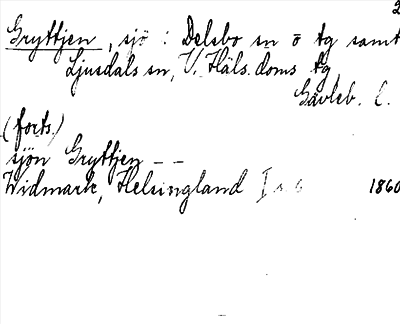 2
Gryttjen, sjö : Delsbo sn o tg samt
Ljusdals sn, V. Häls. doms tg
Gävleb. l.
(forts.)
sjön Gryttjen - -
Widmark, Helsingland I s 6 1860